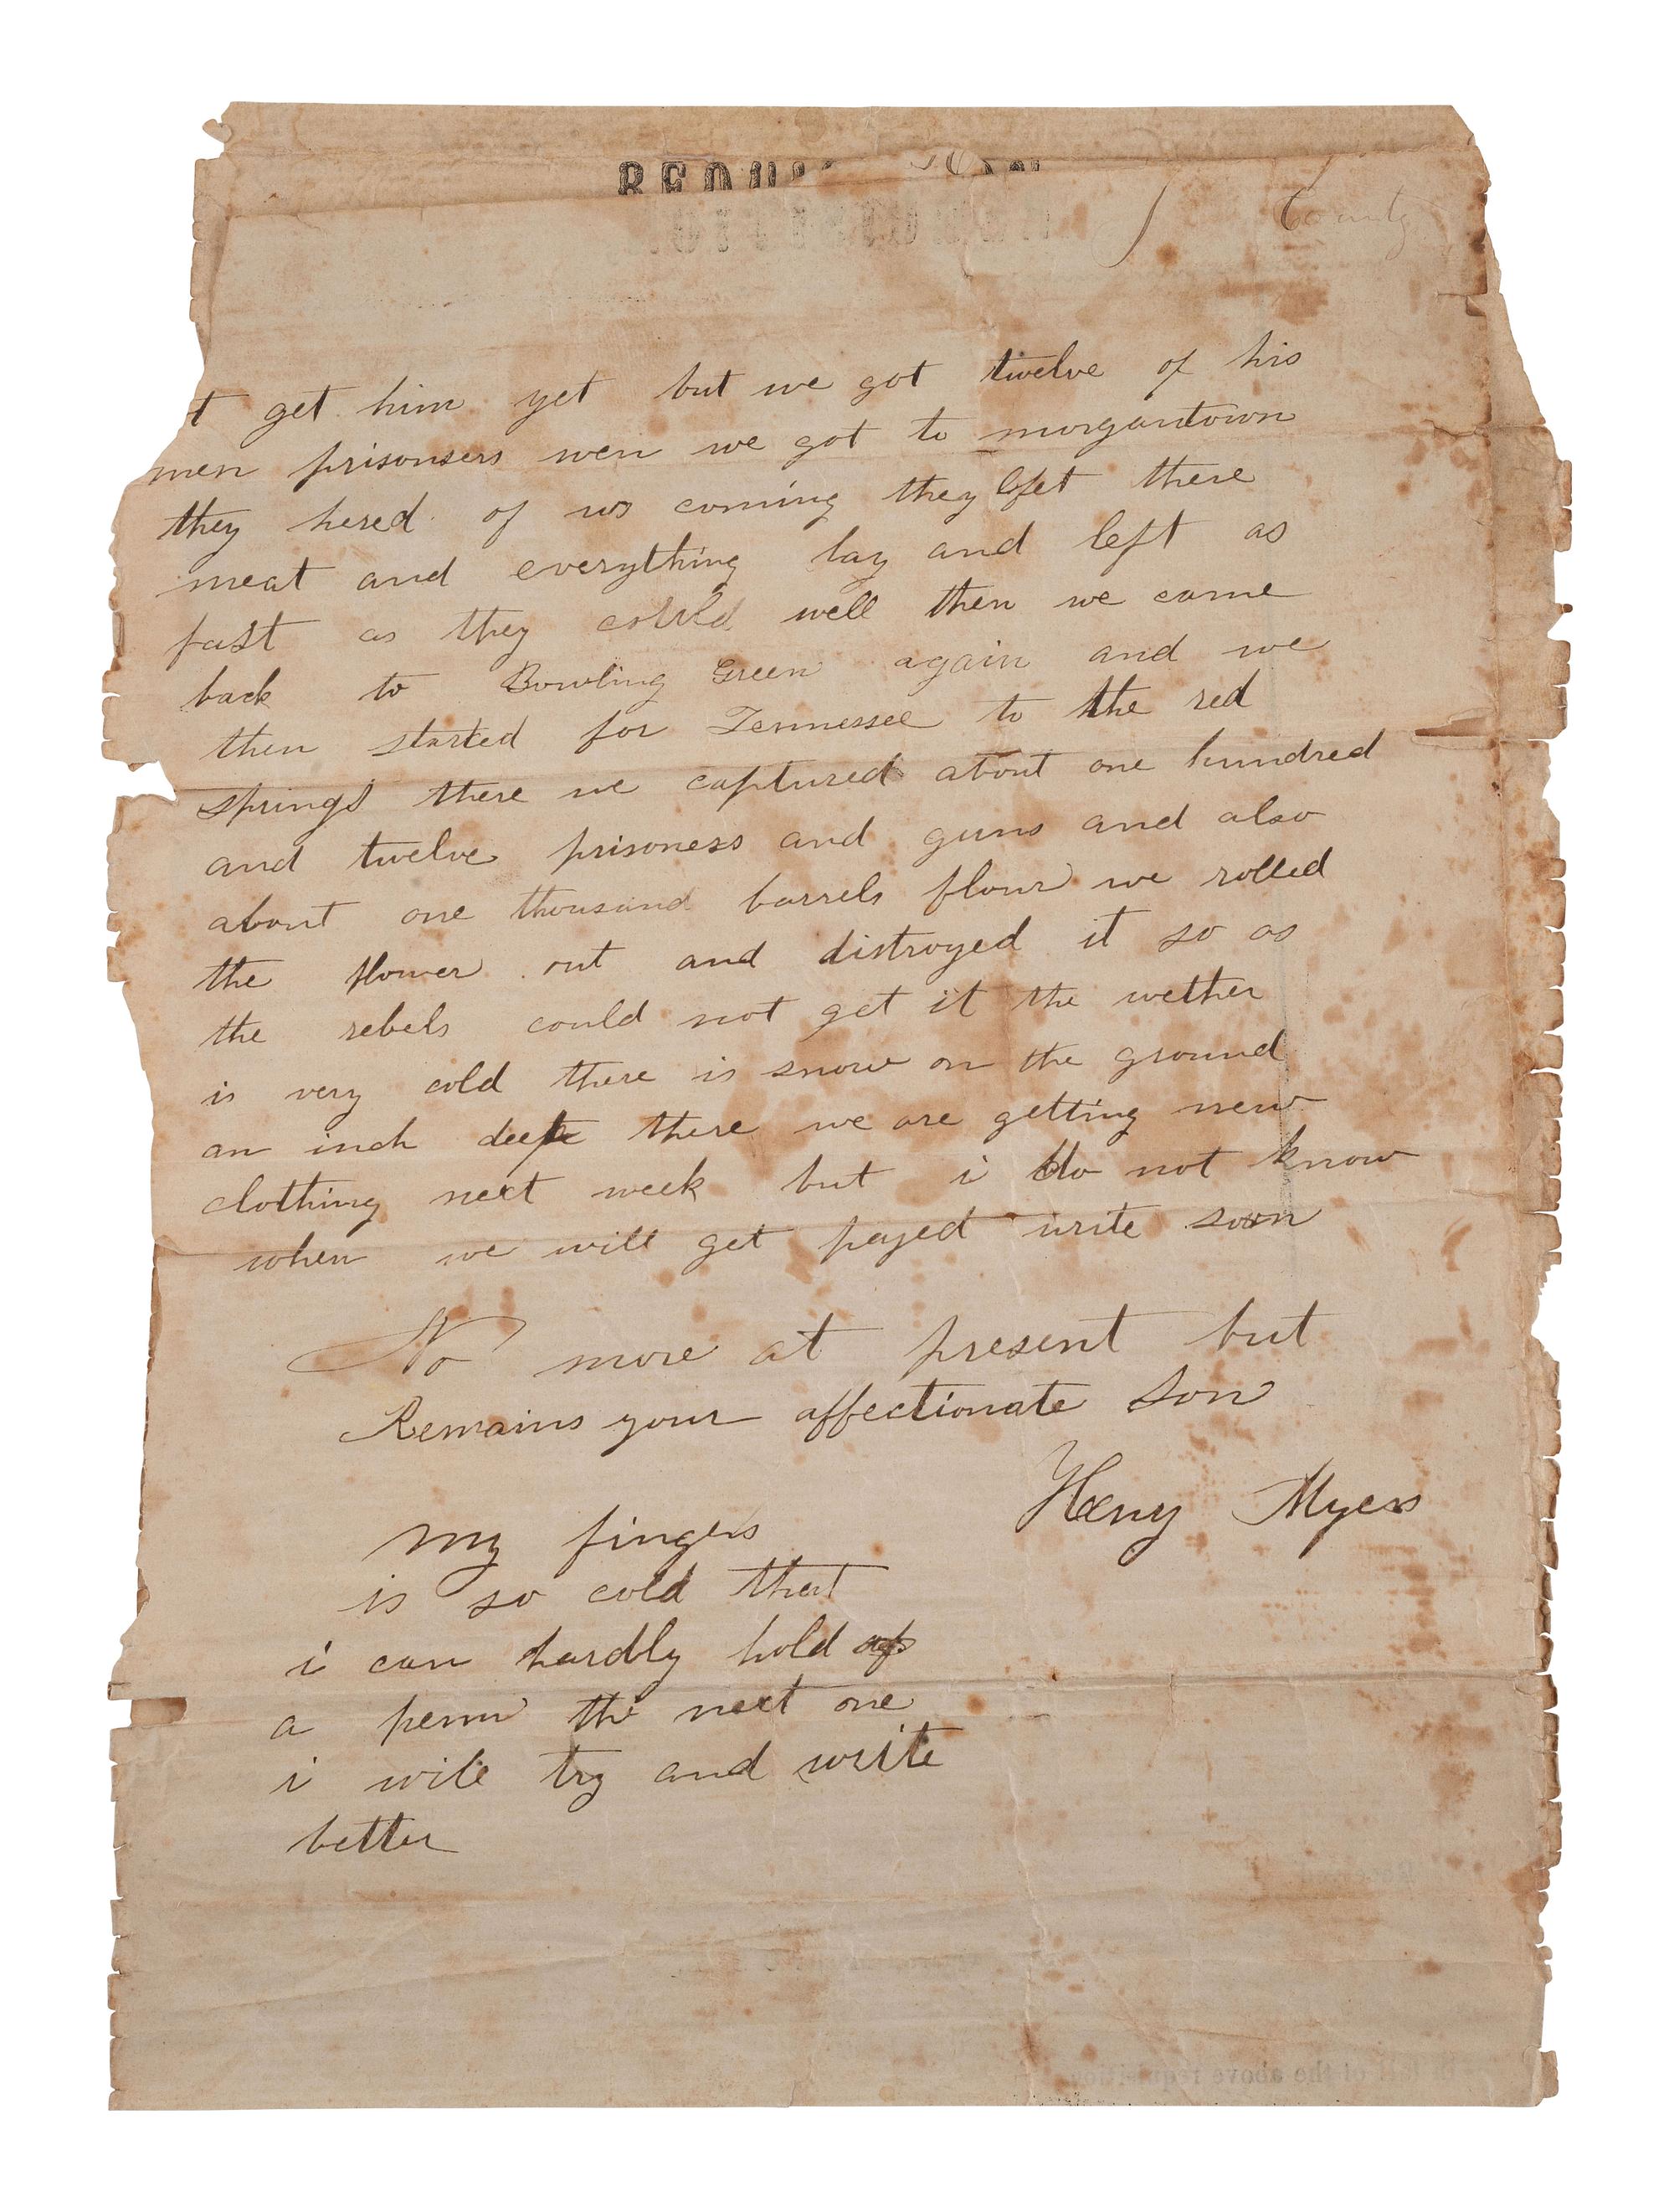 County
t get him yet but we got twelve of his
men prisonsers wen we got to morgantown
they hered of us coming they left there
meat and everything lay and left as
fast as they could well then we came
back to Bowling Green again and we
then started for Tennessee to the red
springs there we captured about one hundred
and twelve prisoners and guns and also
about one thousand barrels flour we rolled
the flower out and distroyed it so as
the rebels could not get it the wether
is very cold there is snow on the ground
an inch deep there we are getting new
clothing next week but i do not know
when we will get payed write soon
No more at present but
Remains your affectionate Son
Henry Myers
my fingers
is so cold that
i can hardly hold
a penn the next one
i wile try and write
better
of the above requisition